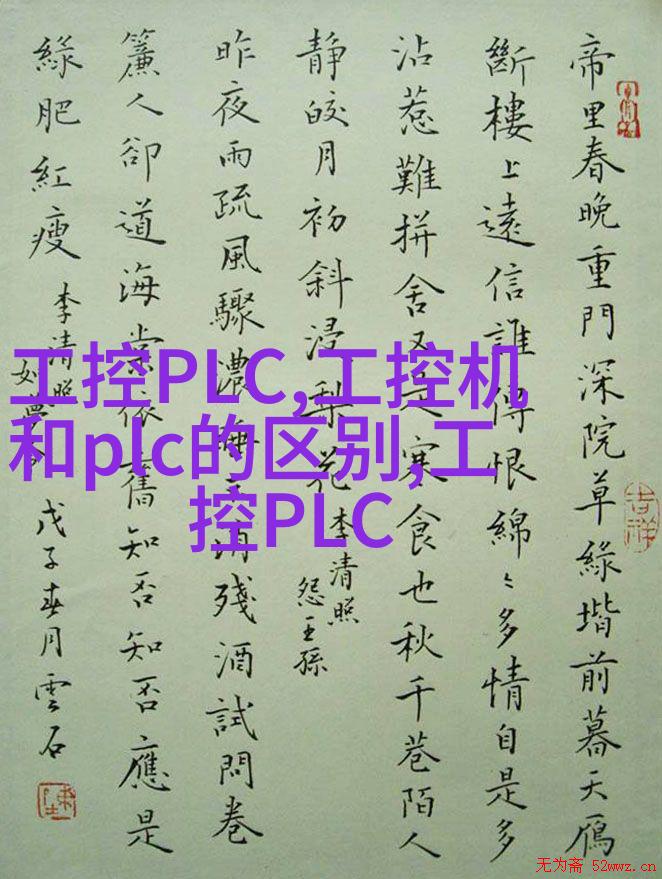 帝里春晚重門深院草緑堦前暮天鴈
斷樓上遠信誰傳恨綿〻多情自是多
沾惹難拼舍又是寒食也秋千巷陌人
静皎月初斜浸梨花
李清照
怨王孫
昨夜雨疏風驟濃睡不消殘酒試問卷
簾人卻道海棠依舊知否知否應是
緑肥紅瘦
李清照
如夢令
戊子春月雲石
吉祥
工控PLC,工控机
和plc的区别,工
控PLC
无为斋 52wwz.cn